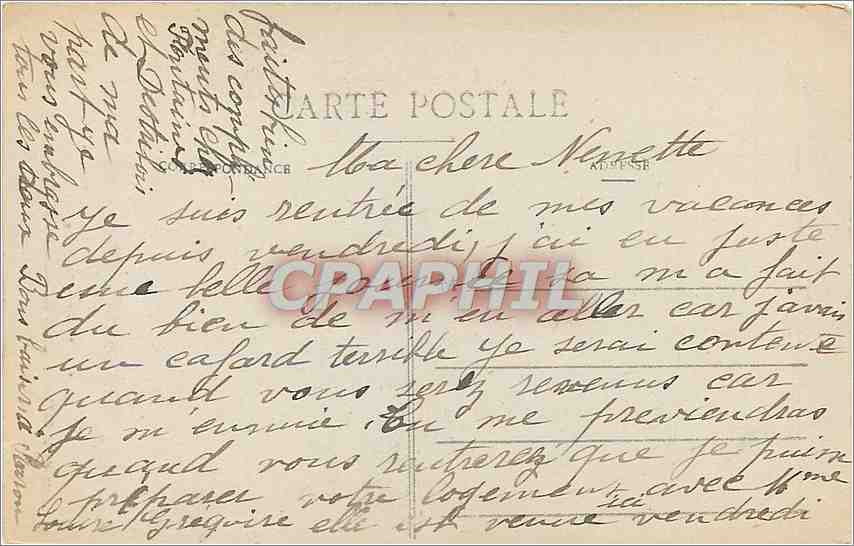 CARTE POSTALE
CORRESPONDANCE
ADRESSE
Ma chere Nenette
je suis rentrée de mes vacances
depuis vendredi, j'ai eu juste
une belle journée sa m'a fait
du bien de m'en aller car j'avais
un cafard terrible je serai contente
quand vous serez revenus car
je m'ennuie. tu me previendras
quand vous rentrerez que je puisse
préparer votre logement avec Mme
Louise Grégoire elle est venue ici vendredi
fait bien
des compli-
ments chez
Fontaine
et
de ma
part je
vous embrasse
tous les deux Bons baisers
CPAPHIL